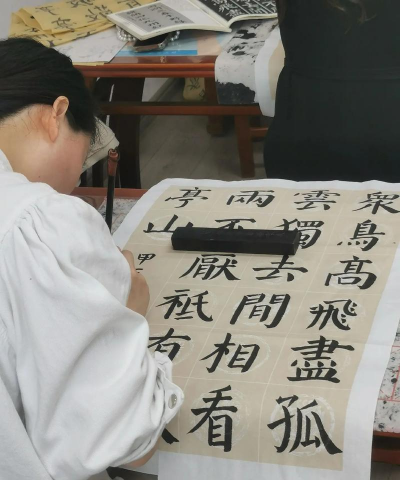 衆鳥高飛盡孤
雲獨去間相看
兩不厭祗有
亭山
甲